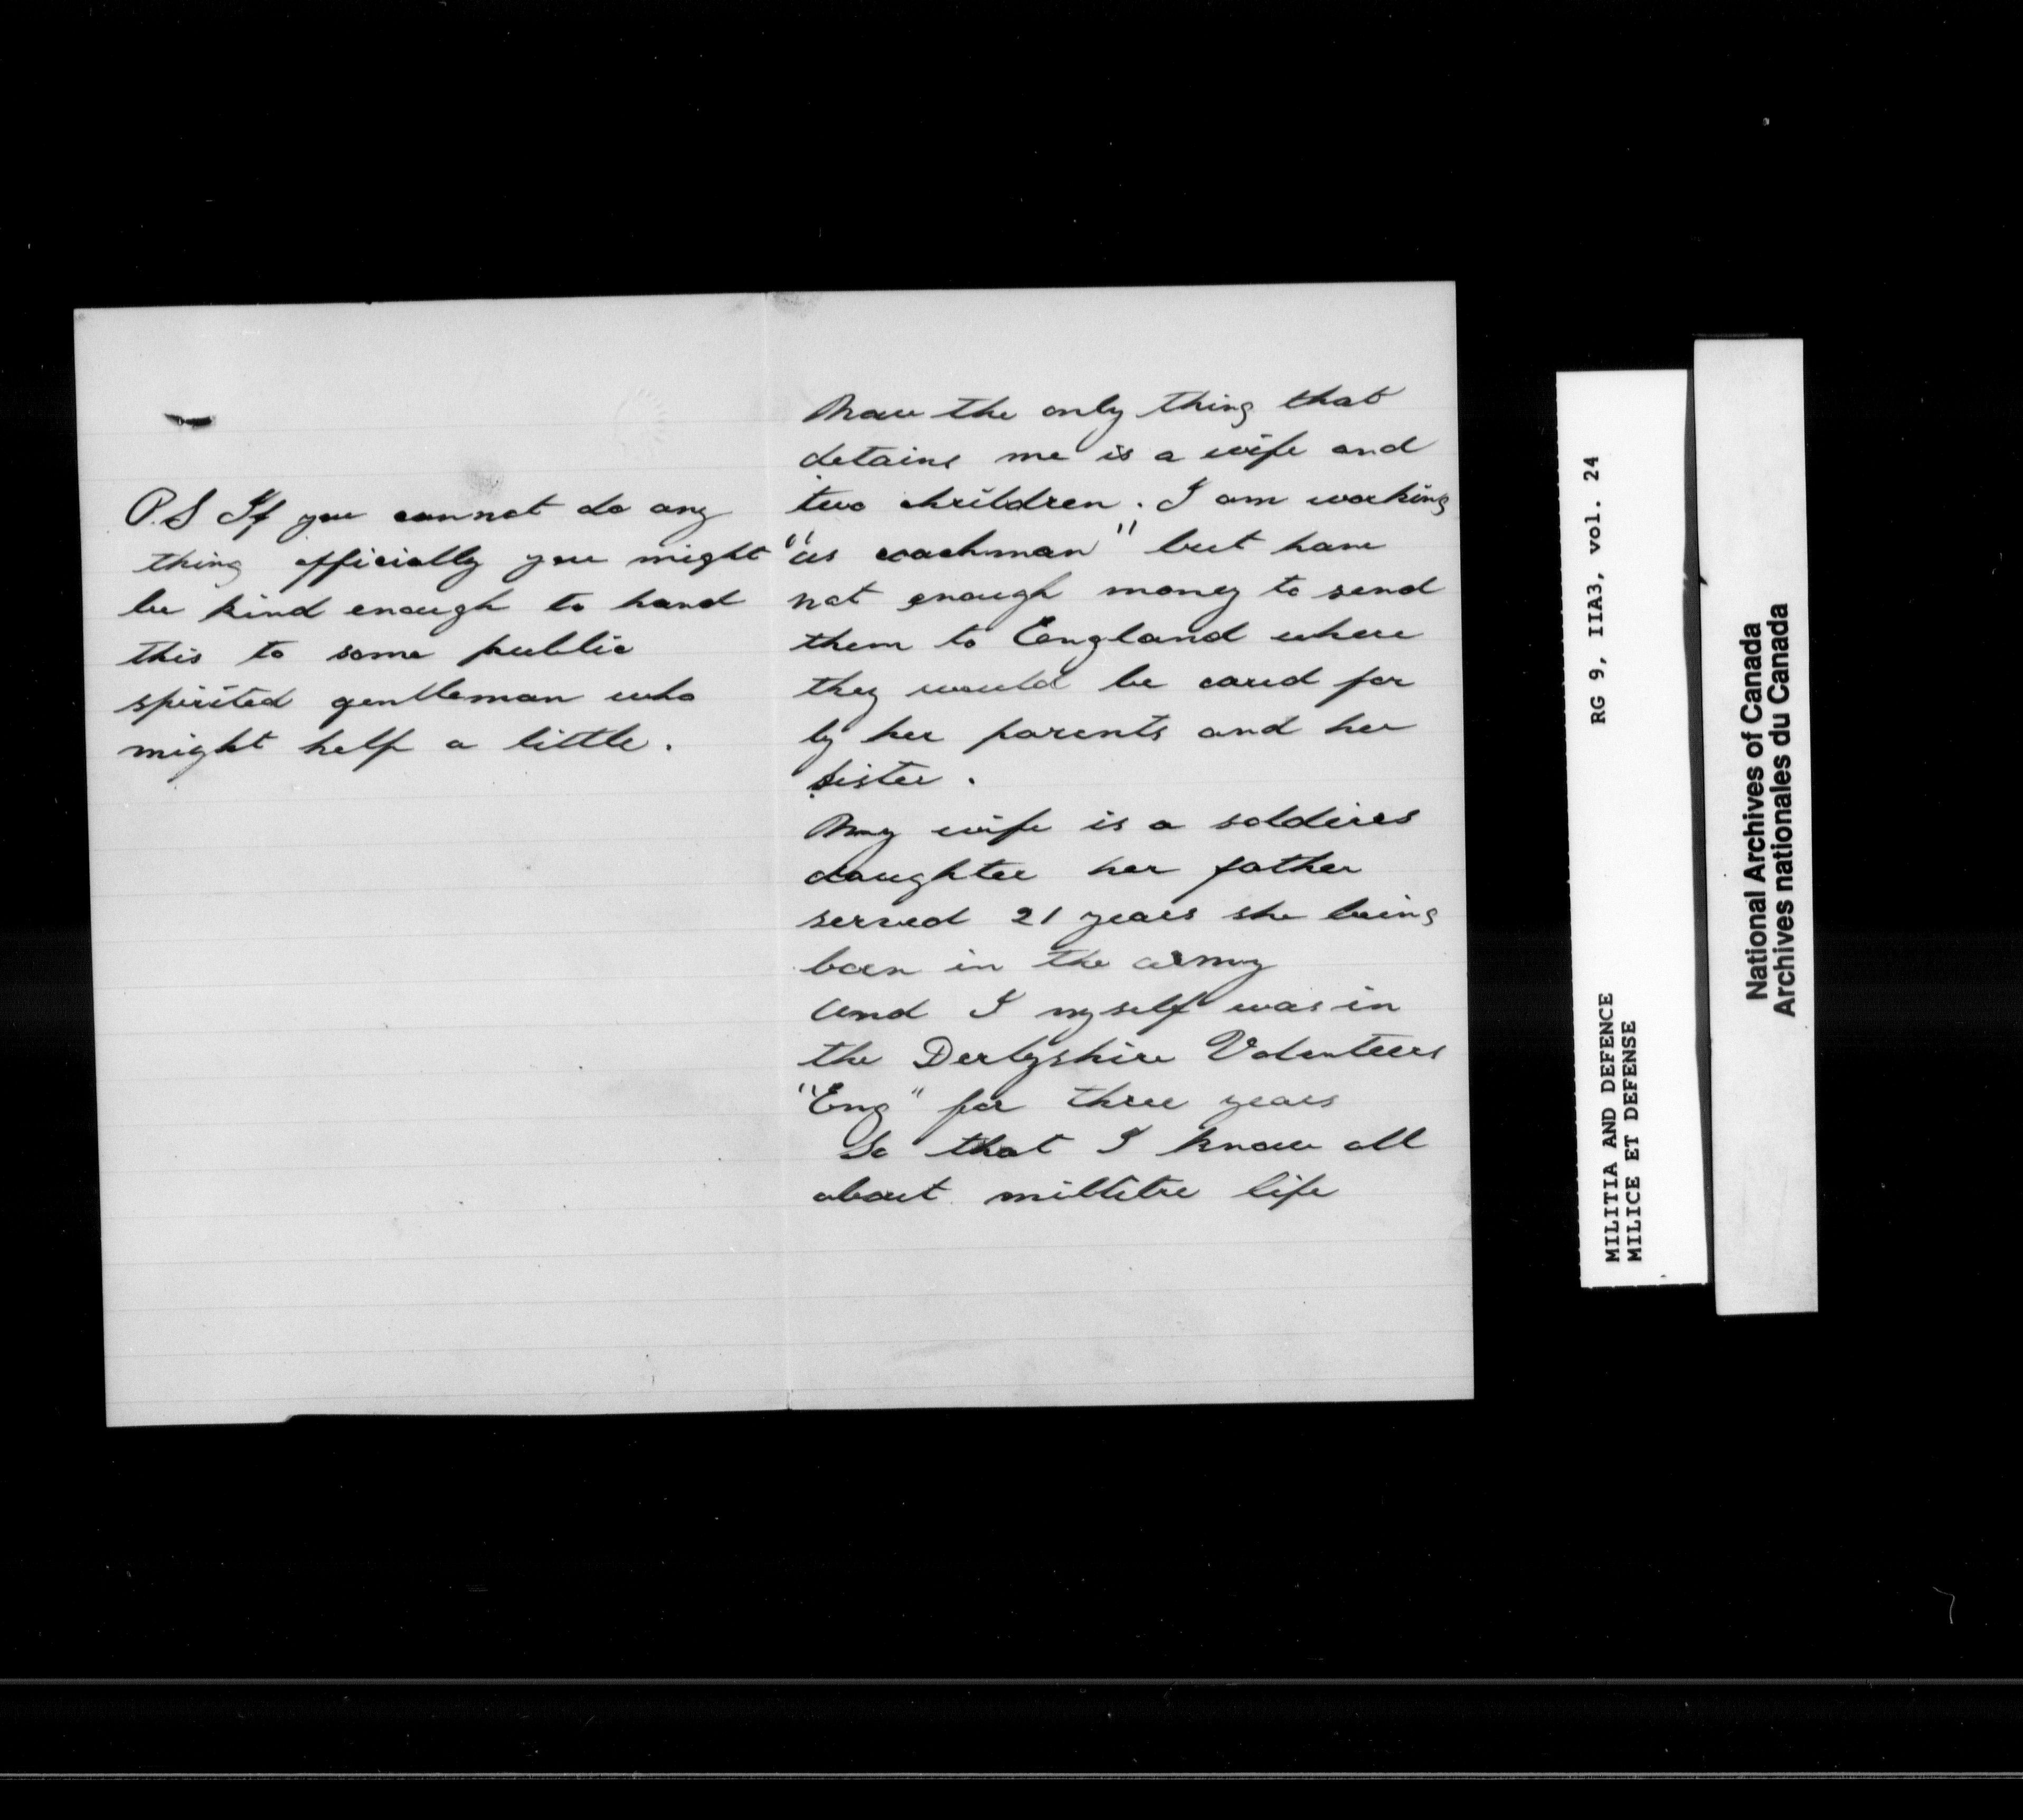 P.S If you cannot do any
thing officially you might
be kind enough to hand
this to some public
spirited gentleman who
might help a little.
Now the only thing that
detains me is a wife and
two children. I am working
"as coachman" but have
not enough money to send
them to England where
they would be cared for
by her parents and her
sister.
My wife is a soldiers
daughter her father
served 21 years she being
born in the army
And I myself was in
the Derbyshire Volunteers
"Eng" for three years
So that I know all
about millitre life
RG 9, IIA3, vol. 24
MILITIA AND DEFENCE
MILICE ET DEFENSE
National Archives of Canada
Archives nationales du Canada